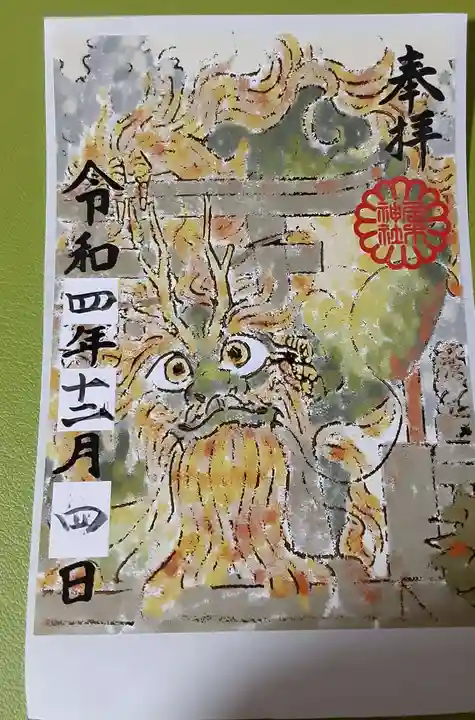 奉拝
神社
令和四年十二月四日